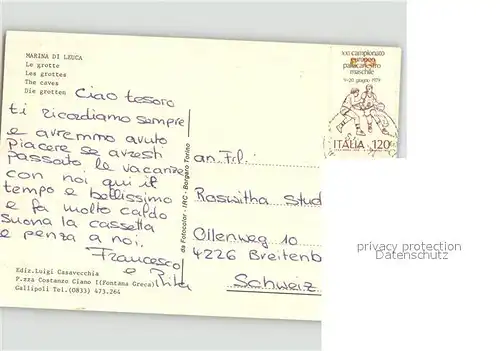 MARINA DI LEUCA
Le grotte
Les grottes
The caves
Die grotten
Ciao tesoro
ti ricordiamo sempre
e avremmo avuto
piacere se avesti
passato le vacanze
con noi qui il
tempo e bellissimo
e fa molto caldo
suona la cassetta
e penza a noi.
Francesco
e Rita
Ediz.Luigi Casavecchia
P.zza Costanzo Ciano I(Fontana Greca)
Gallipoli Tel.(0833) 473.264
da Fotocolor - IRC - Borgaro Torino
XXI campionato
europeo
pallacanestro
maschile
9-20 giugno 1979
ITALIA 120
an Frl.
Roswitha Stud
Ollenweg 10
4226 Breitenb
Schweiz
privacy protection
Datenschutz